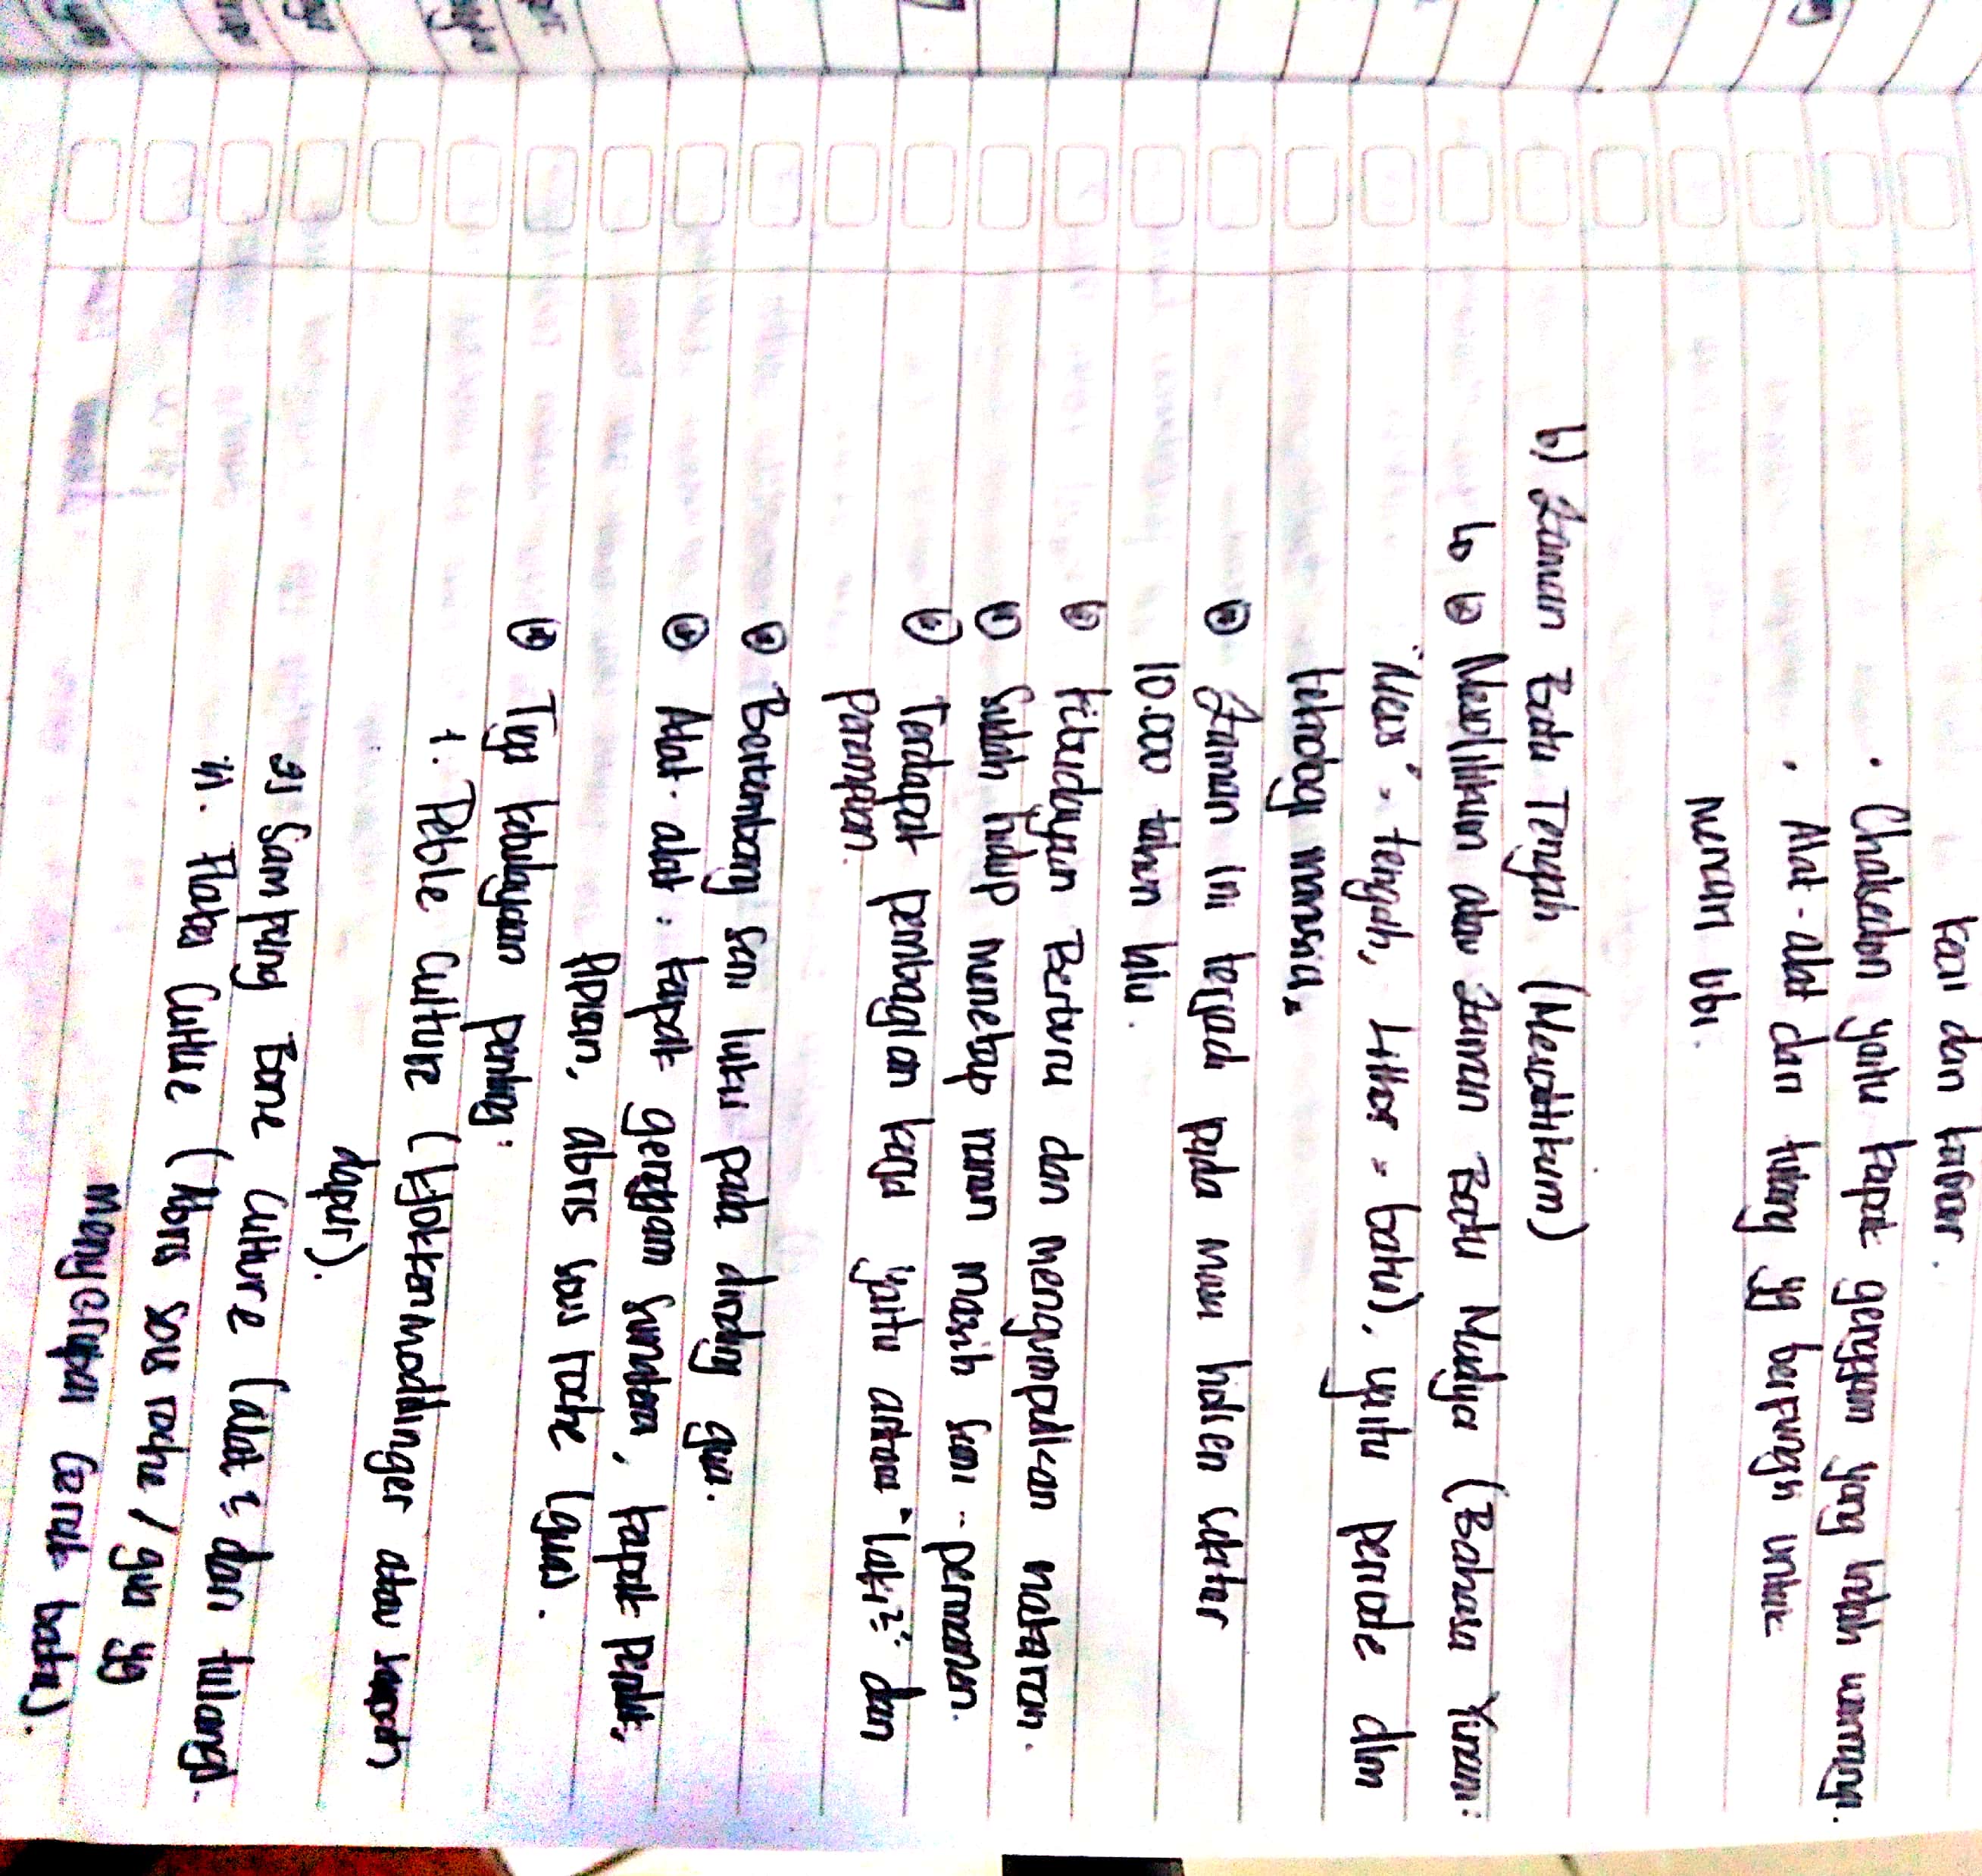 kecil dan kasar.
• Chalsedon yaitu kapak genggam yang indah warnanya.
• Alat-alat dari tulang yg berfungsi untuk
mencari ubi.
b) Zaman Batu Tengah (Mesolitikum)
↳ Mesolitikum atau Zaman Batu Madya (Bahasa Yunani:
"Meos" = tengah, Lithos = batu), yaitu periode dlm
teknologi manusia.
Zaman ini terjadi pada masa holosen sekitar
10.000 tahun lalu.
Kebudayaan Berburu dan mengumpulkan makanan.
Sudah hidup menetap namun masih semi-permanen.
Terdapat pembagian kerja yaitu antara "laki2" dan
perempuan.
Berkembang seni lukis pada dinding gua.
Alat-alat: kapak genggam Sumatera, kapak pendek,
Pipisan, abris sous roche (gua).
Tiga kebudayaan penting:
1. Peble Culture (Kjokkenmoddinger atau sampah
dapur).
2) Sampung Bone Culture (alat2 dari tulang).
Flakes Culture (Abris sous roche / gua yg
menyerupai ceruk batu).